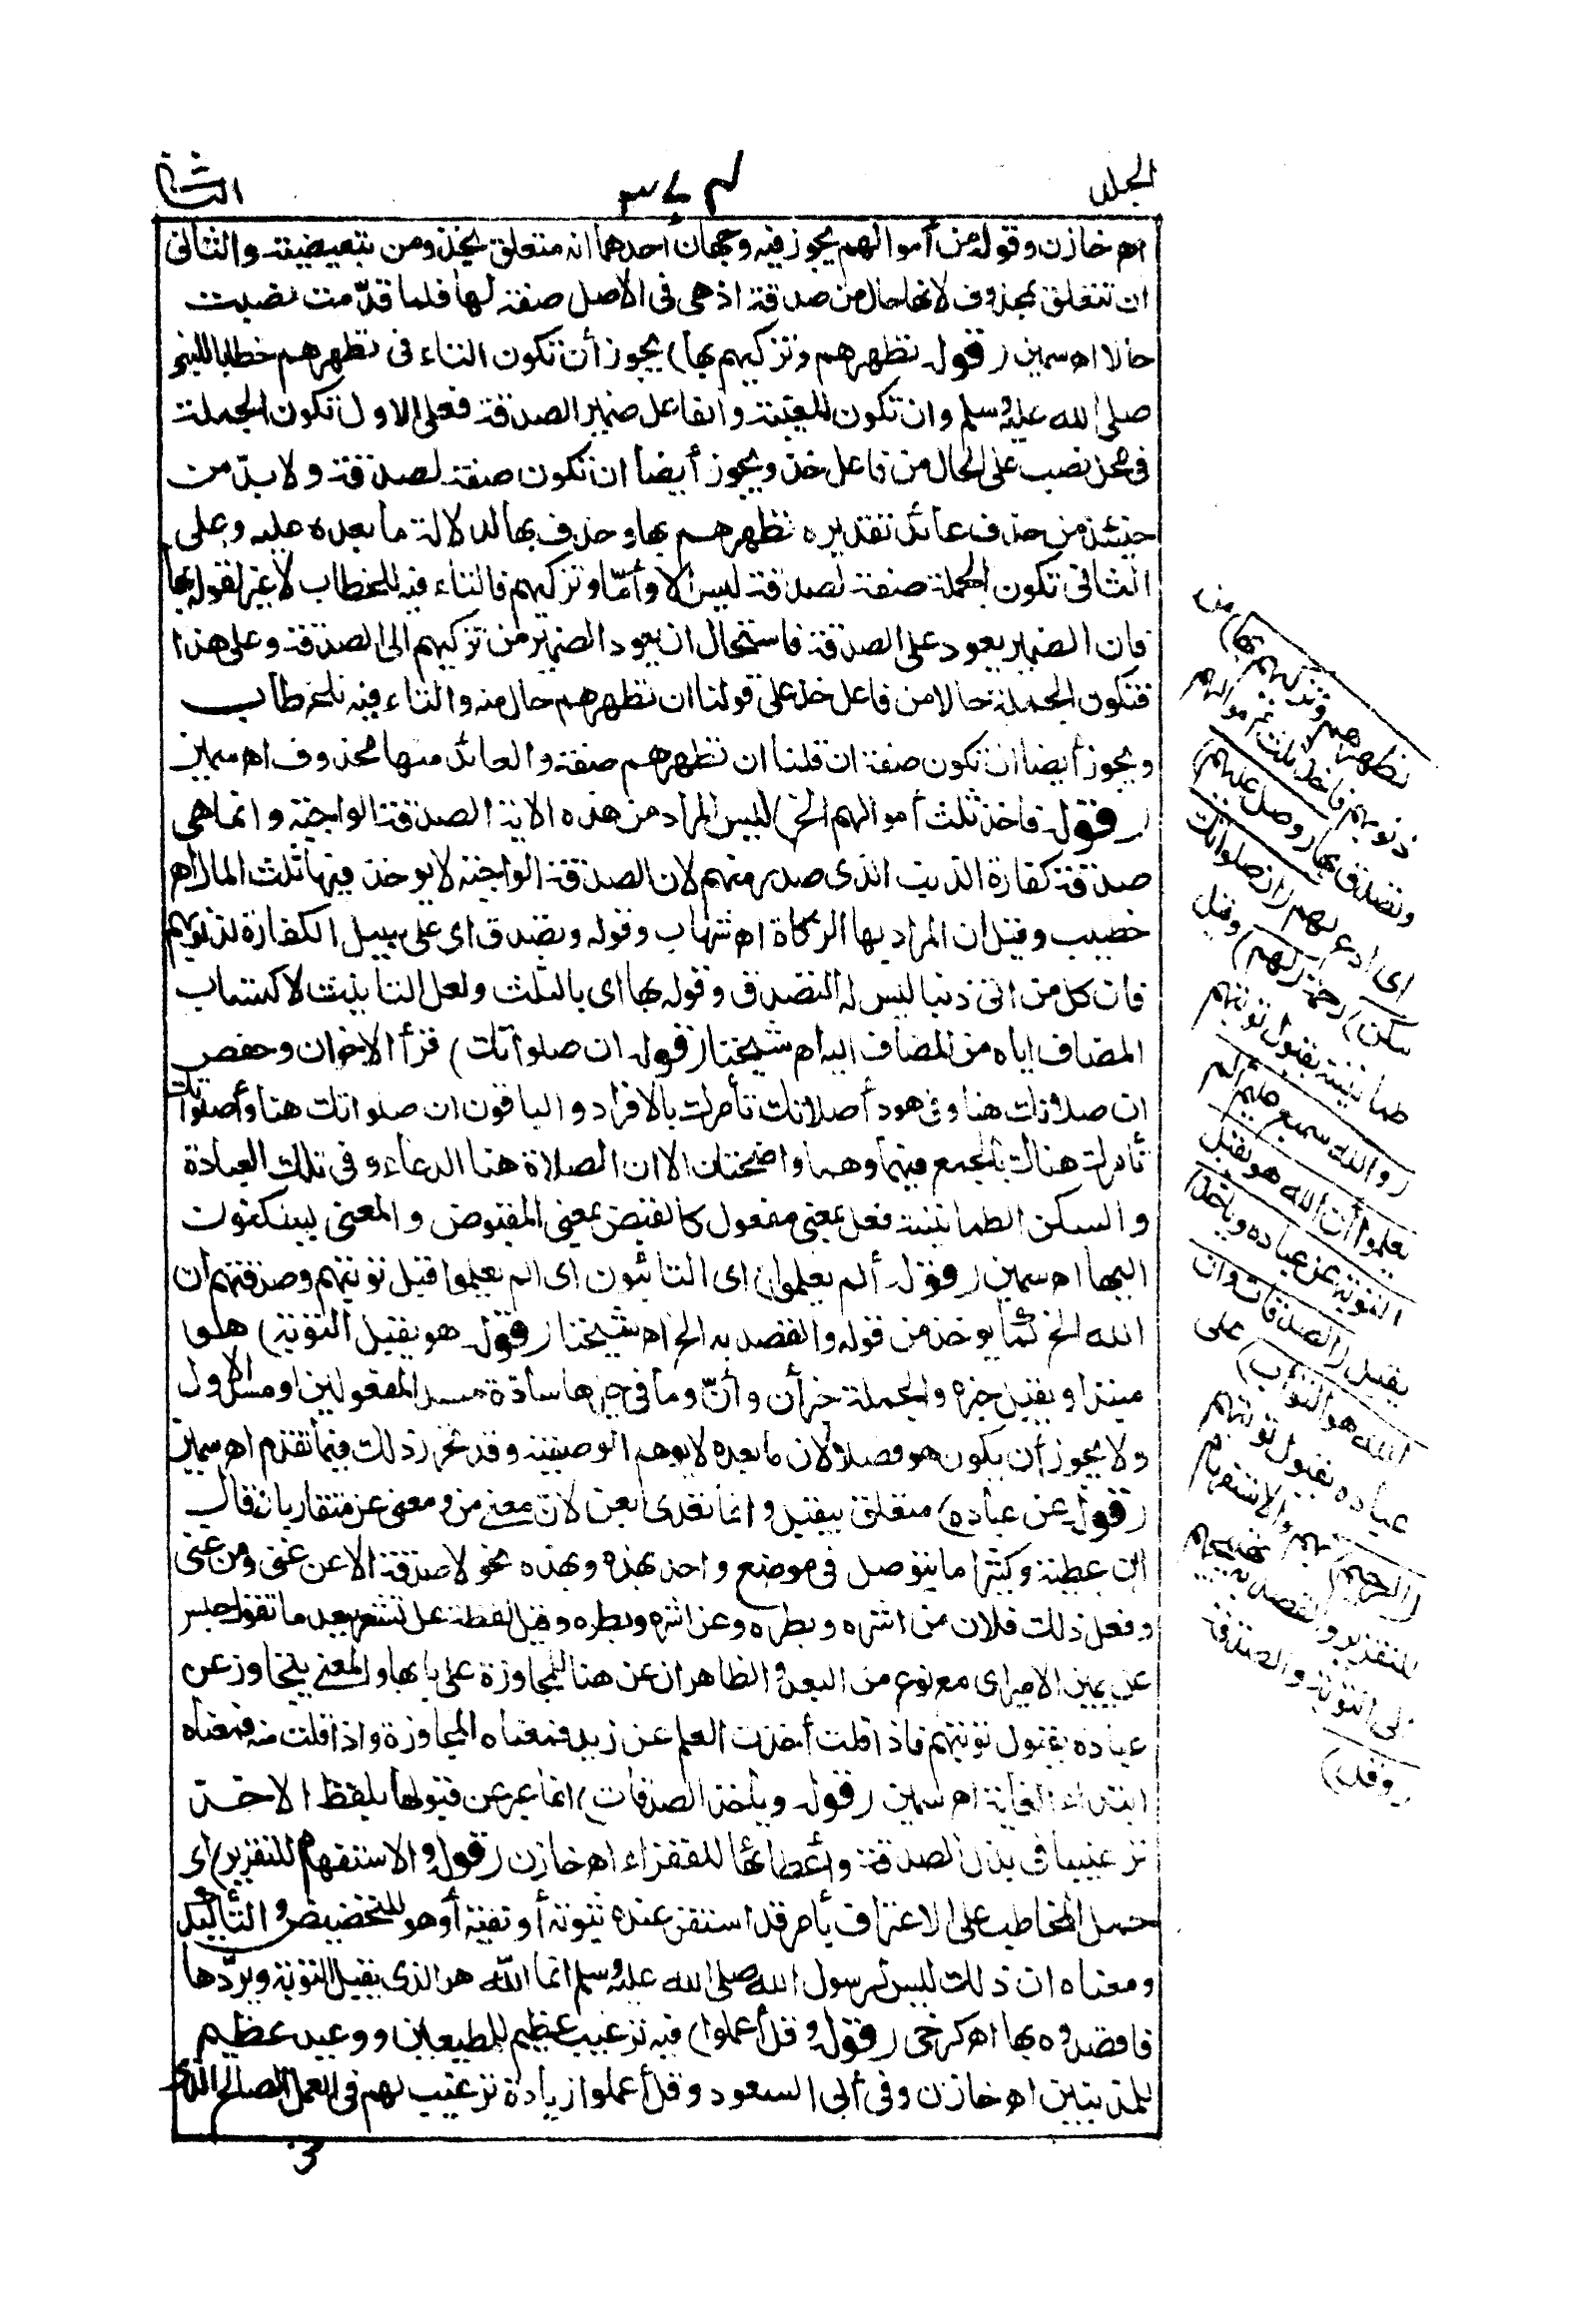 الجلد
٣٧٤
الثانى
اه خازن وقوله من أموالهم يجوز فيه وجهان أحدهما انه متعلق بخذ ومن تبعيضية والثانى
ان تتعلق بمحذوف لانها حال من صدقة اذ هى فى الاصل صفة لها فلما قدّمت نصبت
حالا اه سمين (قوله تطهرهم وتزكيهم بها) يجوز أن تكون التاء فى تطهرهم خطابا للنبى
صلى الله عليه وسلم وان تكون للغيبة والفاعل ضمير الصدقة فعلى الاول تكون الجملة
فى محل نصب على الحال من فاعل خذ ويجوز أيضا ان تكون صفة لصدقة ولا بدّ من
حينئذ من حذف عائد تقديره تطهرهم بها وحذف بها لدلالة ما بعده عليه وعلى
الثانى تكون الجملة صفة لصدقة ليس الا وأمّا وتزكيهم فالتاء فيه للخطاب لا غير لقوله بها
فان الضمير يعود على الصدقة فاستحال ان يعود الضمير من تزكيهم الى الصدقة وعلى هذا
فتكون الجملة حالا من فاعل خذ على قولنا ان تطهرهم حال منه والتاء فيه للخطاب
ويجوز أيضا ان تكون صفة ان قلنا ان تطهرهم صفة والعائد منها محذوف اه سمين
(قوله فاخذ ثلث أموالهم الخ) ليس المراد من هذه الآية الصدقة الواجبة وانما هى
صدقة كفارة الذنب الذى صدر منهم لان الصدقة الواجبة لا يوخذ فيها ثلث المال اه
خطيب وقيل ان المراد بها الزكاة اه شهاب وقوله وتصدق اى على سبيل الكفارة لذنوبهم
فان كل من اتى ذنبا ليس له التصدق وقوله بها اى بالثلث ولعل التأنيث لاكتساب
المضاف اياه من المضاف اليه اه شيخنا (قوله ان صلوآتك) قرأ الاخوان وحفص
ان صلاتك هنا وفى هود أصلاتك تأمرك بالافراد والباقون ان صلواتك هنا وأصلواتك
تأمرك هناك بالجمع فيهما وهما واضحتان الا ان الصلاة هنا الدعاء وفى تلك العبادة
والسكن الطمانينة فعل بمعنى مفعول كالقبض بمعنى المقبوض والمعنى يسكنون
اليها اه سمين (قوله ألم يعلموا) اى التائبون اى الم يعلموا قبل توبتهم وصدقتهم ان
الله الخ كما يوخذ من قوله والقصد به الخ اه شيخنا (قوله هو يقبل التوبة) هو
مبتدا ويقبل خبره والجملة خبر أن وأنّ وما فى حيزها سادّة مسد المفعولين او مسد الاول
ولا يجوز أن يكون هو فصلا لان ما بعده لا يوهم الوصفية وقد تحرر ذلك فيما تقدم اه سمين
(قوله عن عباده) متعلق بيقبل وانما تعدى بعن لان معنى من ومعنى عن متقاربان قال
ابن عطية وكثيرا ما يتوصل فى موضع واحد بهذه وبهذه نحو لا صدقة الا عن غنى ومن غنى
وفعل ذلك فلان من اشره وبطره وعن اشره وبطره وقيل لفظة عن تشعر ببعد ما تقول جلس
عن يمين الامير اى مع نوع من البعد والظاهر ان عن هنا للمجاوزة على بابها والمعنى يتجاوز عن
عباده بقبول توبتهم فاذا قلت أخذت العلم عن زيد فمعناه المجاوزة واذا قلت منه فمعناه
ابتداء الغاية اه سمين (قوله وياخذ الصدقات) انما عبر عن قبولها بلفظ الاخذ
ترغيبا فى بذل الصدقة وأعطائها للفقراء اه خازن (قوله والاستفهام للتقرير) اى
حمل المخاطب على الاعتراف بأمر قد استقر عنده ثبوته أو نفيه أو هو للتخصيص والتأكيد
ومعناه ان ذلك ليس لرسول الله صلى الله عليه وسلم انما الله هو الذى يقبل التوبة ويردّها
فاقصدوه بها اه كرخى (قوله وقل أعملوا) فيه ترغيب عظيم للمطيعين ووعيد عظيم
للمذنبين اه خازن وفى أبى السعود وقل أعملوا زيادة ترغيب لهم فى العمل الصالح الذى
تطهرهم وتزكيهم بها) من
ذنوبهم فاخذ ثلث أموالهم
وتصدق بها (وصل عليهم)
اى ادع لهم (ان صلواتك
سكن) رحمة (لهم) وقيل
طمانينة بقبول توبتهم
(والله سميع عليم الم
يعلموا أن الله هو يقبل
التوبة عن عباده وياخذ)
يقبل (الصدقات وان
الله هو التواب) على
عباده بقبول توبتهم
(الرحيم) بهم والاستفهام
للتقرير والقصد به تهييجهم
الى التوبة والصدقة
(وقل)